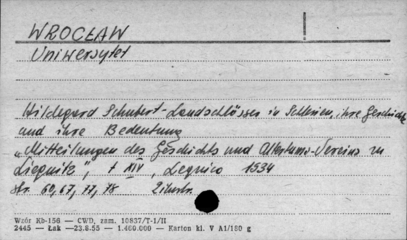 WROCŁAW
Uniwersytet
Hildegard Schubert - Landschlösser in Schlesien, ihre Geschichte
und ihre Bedeutung
"Mitteilungen des Geschichts und Altertums-Vereins zu
Liegnitz, t XIV, Legnica 1934
str. 60, 67, 77, 78 2 ilustr.
Wzór Kb-156 — CWD, zam. 10837/T-1/II
2445 — Łak —23.8.55 — 1.400.000 — Karton kl. V A1/180 g